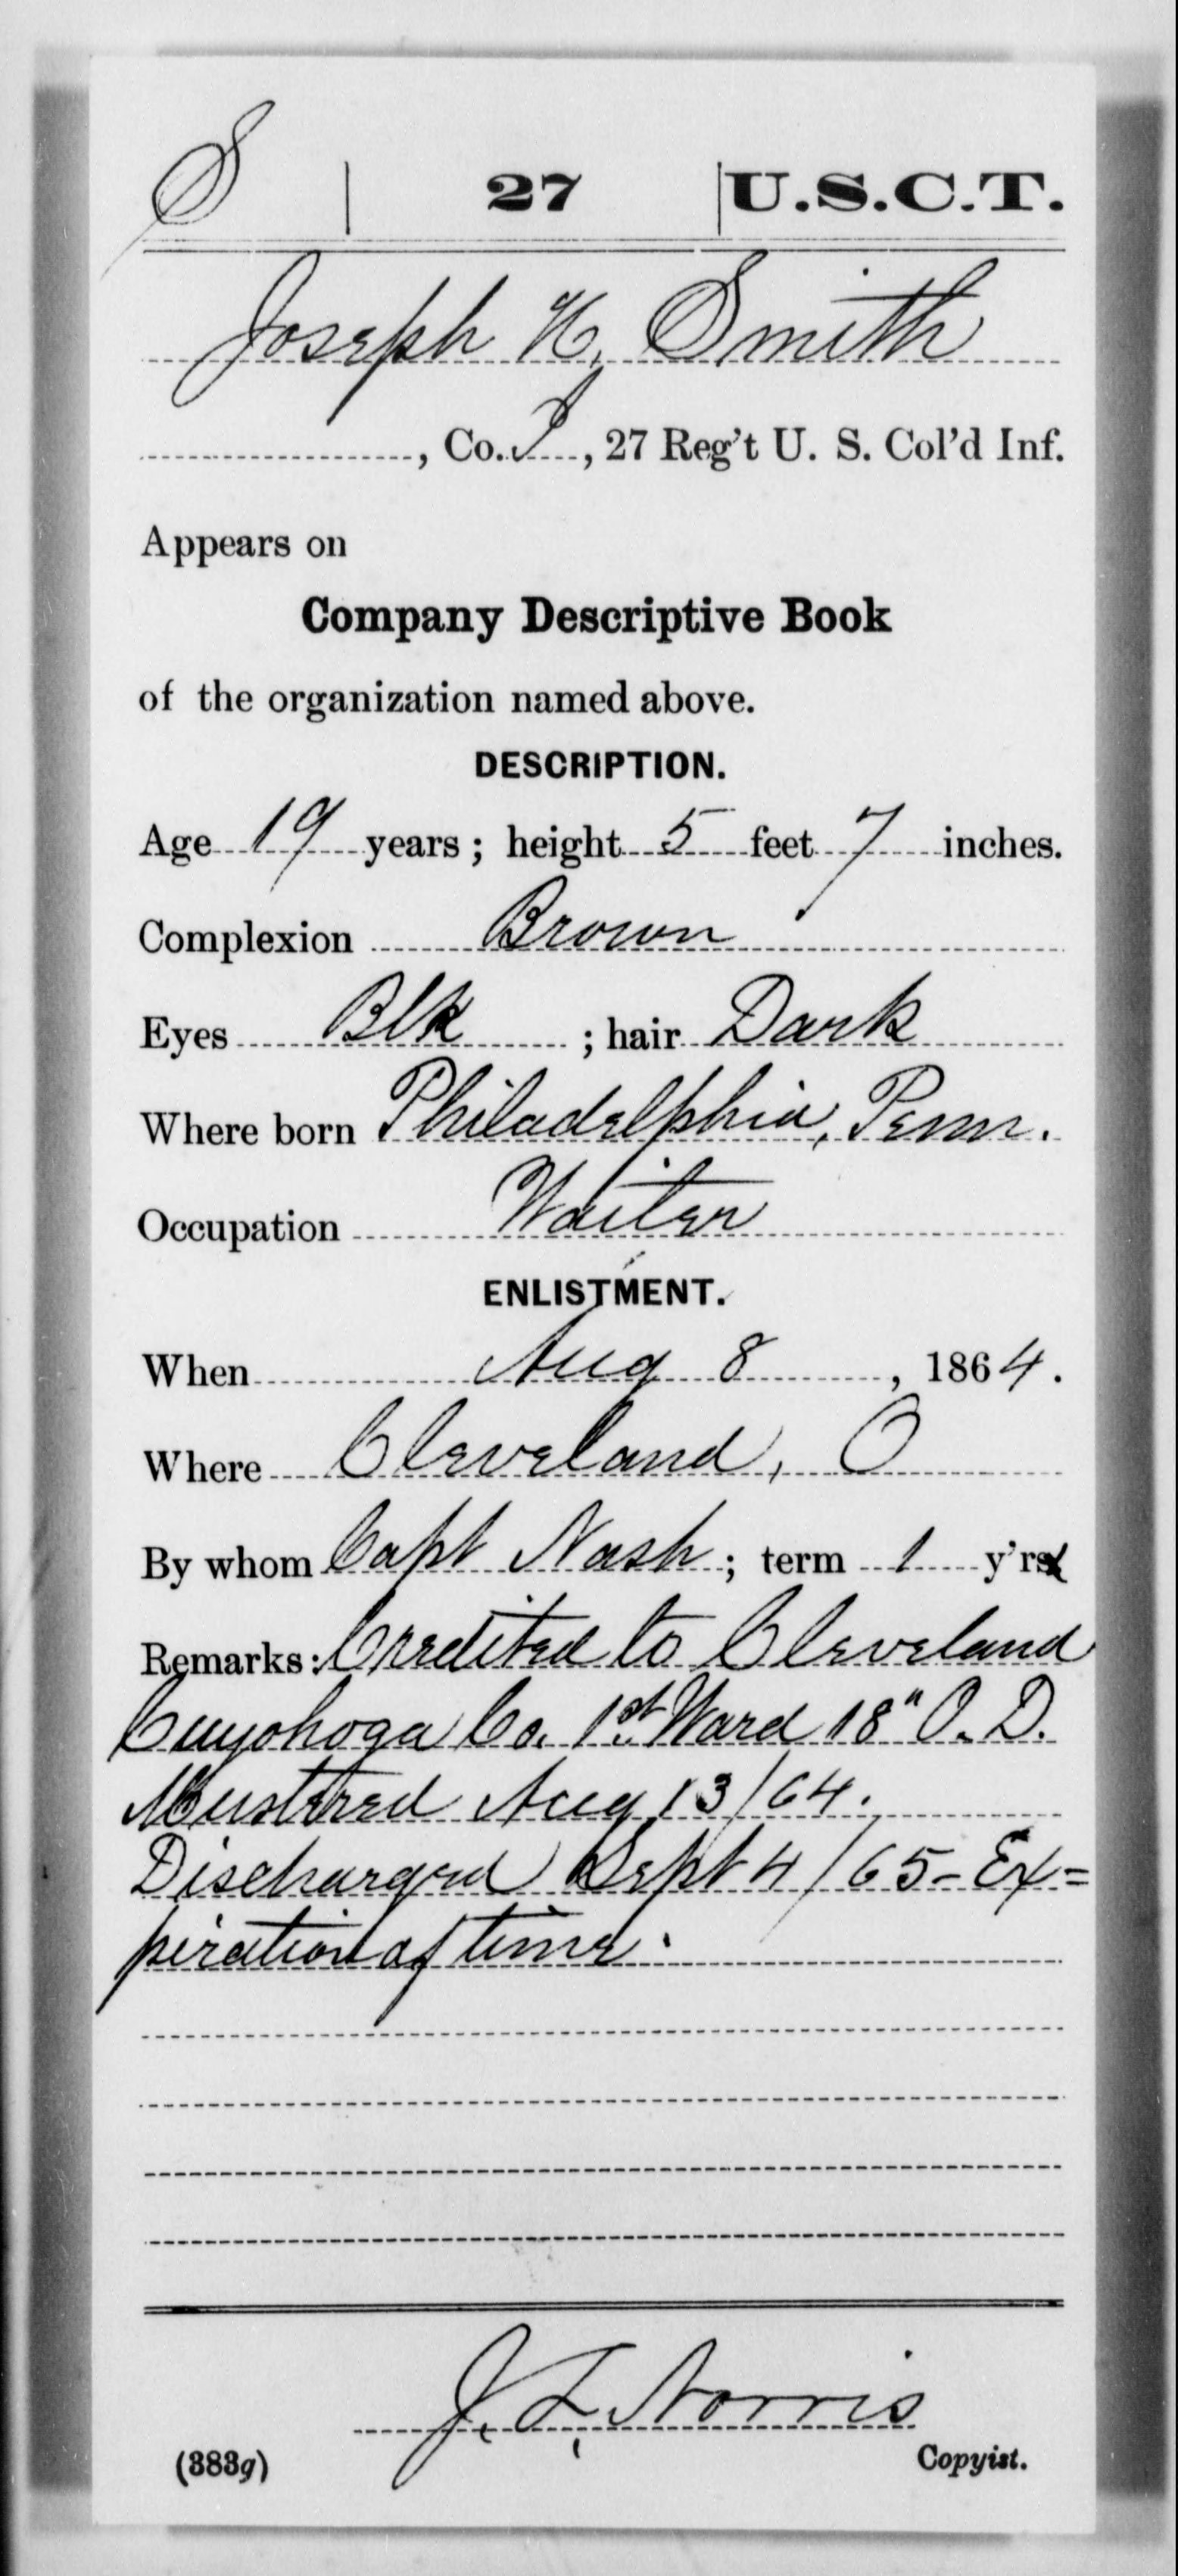 S | 27 | U.S.C.T.
Joseph H. Smith
, Co. I, 27 Reg't U. S. Col'd Inf.
Appears on
Company Descriptive Book
of the organization named above.
DESCRIPTION.
Age 19 years; height 5 feet 7 inches.
Complexion Brown
Eyes Blk ; hair Dark
Where born Philadelphia, Penn.
Occupation Waiter
ENLISTMENT.
When Aug 8, 1864.
Where Cleveland, O
By whom Capt Nash; term 1 y'rs
Remarks: Credited to Cleveland
Cuyohoga Co. 1st Ward 18" O. D.
Mustered Aug 13/64.
Discharged Sept 4/65 - Ex=
piration of time.
J. F. Norris
Copyist.
(383g)